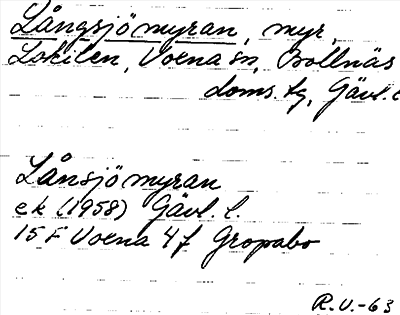 Långsjömyran, myr,
Lakilen, Voxna sn, Bollnäs
doms. tg, Gävl. l
Långsjömyran
ek (1958) Gävl. l.
15 F Voxna 4 f Gropabo
R.U.-63